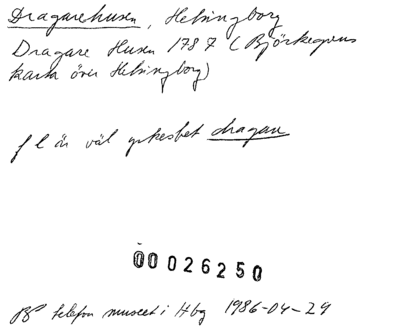 Dragarehusen, Helsingborg
Dragare Husen 1787 (Björkegrens
karta över Helsingborg)
f l är väl yrkesbet dragare
Ö0026250
BP telefon museet i Hbg 1986-04-29